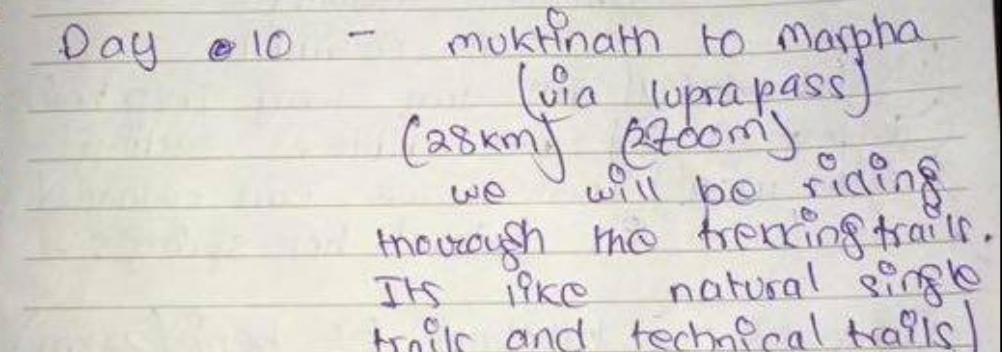 Day 10 - muktinath to Marpha
(via luprapass)
(28km) (2700m)
we will be riding
thourough the trekking trails.
Its like natural single
trails and technical trails)